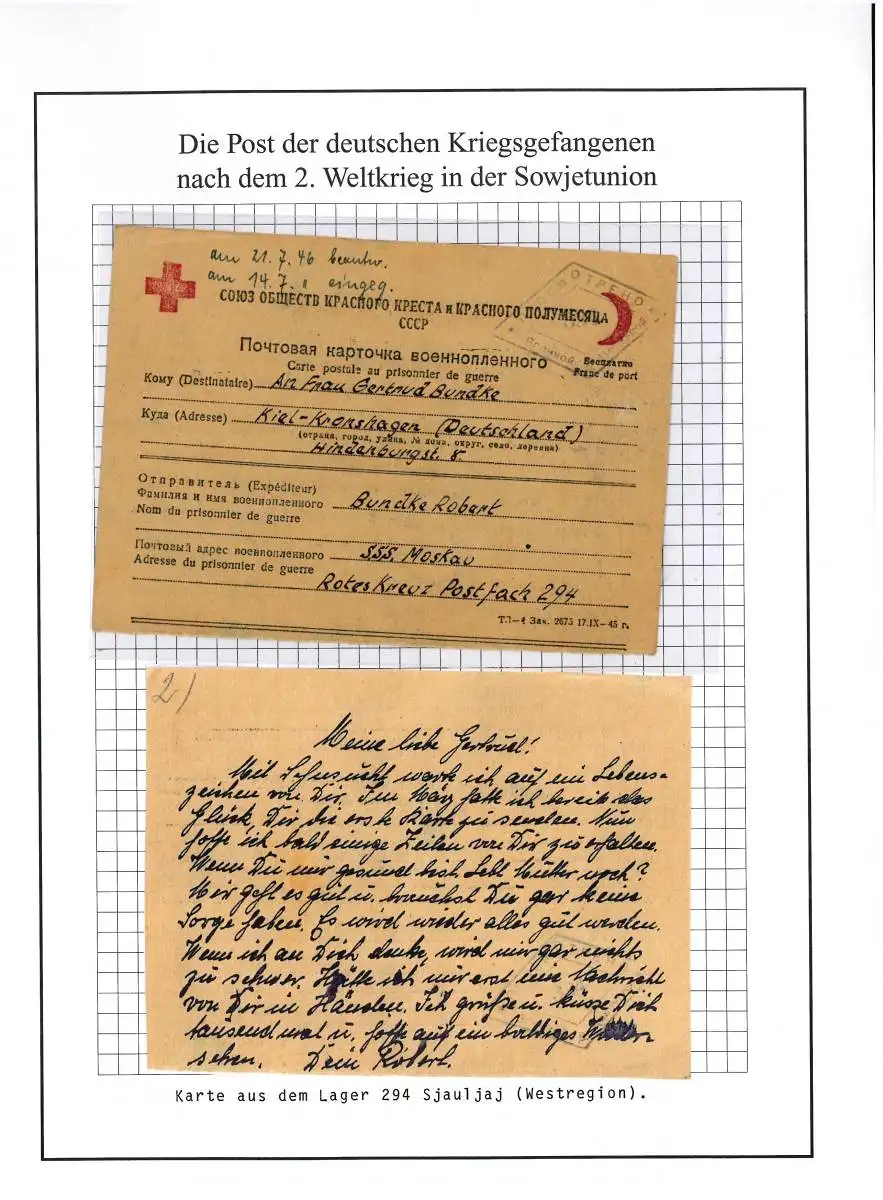 Die Post der deutschen Kriegsgefangenen
nach dem 2. Weltkrieg in der Sowjetunion
am 21.7.46 beantw.
am 14.7. " eingeg.
СОЮЗ ОБЩЕСТВ КРАСНОГО КРЕСТА и КРАСНОГО ПОЛУМЕСЯЦА
СССР
Почтовая карточка военнопленного
Carte postale au prisonnier de guerre
Бесплатно
Franc de port
Кому (Destinataire) An Frau Gertrud Bundke
Куда (Adresse) Kiel-Kronshagen (Deutschland)
(страна, город, улица, № дома, округ, село, деревня)
Hindenburgst. 8.
Отправитель (Expéditeur)
Фамилия и имя военнопленного
Nom du prisonnier de guerre
Bundke Robert
Почтовый адрес военнопленного SSS. Moskau
Adresse du prisonnier de guerre
Rotes Kreuz Postfach 294
Зак. 2675 17.IX—45 г.
2)
Meine liebe Gertrud!
Mit Sehnsucht warte ich auf ein Lebens-
zeichen von Dir. Im März hatte ich bereits das
Glück, Dir die erste Karte zu senden. Nun
hoffe ich bald einige Zeilen von Dir zu erhalten.
Wenn Du nur gesund bist. Lebt Mutter noch?
Mir geht es gut u. brauchst Du gar keine
Sorge haben. Es wird wieder alles gut werden.
Wenn ich an Dich denke, wird mir gar nichts
zu schwer. Hätte ich nur erst eine Nachricht
von Dir in Händen. Ich grüße u. küsse Dich
tausendmal u. hoffe auf ein baldiges Wieder-
sehen. Dein Robert.
Karte aus dem Lager 294 Sjauljaj (Westregion).